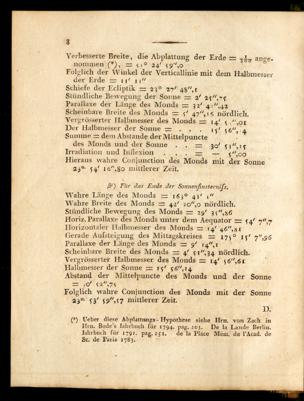 8
Verbesserte Breite, die Abplattung der Erde = ange-
nommen (*), = 51° 24′ 59″,0
Folglich der Winkel der Verticallinie mit dem Halbmesser
der Erde = 11′ 11″
Schiefe der Ecliptik = 23° 27′ 48″,1
Stündliche Bewegung der Sonne = 2′ 25″,75
Parallaxe der Länge des Monds = 32′ 42″,42
Scheinbare Breite des Monds = 5′ 47″,15 nördlich.
Vergrösserter Halbmesser des Monds = 14′ ″,01
Der Halbmesser der Sonne = . . . 15′ 56″, 4
Summe = dem Abstande der Mittelpuncte
des Monds und der Sonne . . = 30′ 51″,15
Irradiation und Inflexion . . = — 5″,00
Hieraus wahre Conjunction des Monds mit der Sonne
23ᵘ 54′ 10″,80 mittlerer Zeit.
β) Für das Ende der Sonnenfinsterniss.
Wahre Länge des Monds = 163° 41′ 1″
Wahre Breite des Monds = 42′ 20″,0 nördlich.
Stündliche Bewegung des Monds = 29′ 31″,86
Horiz. Parallaxe des Monds unter dem Aequator = 54′ 7″,7
Horizontaler Halbmesser des Monds = 14′ 46″,81
Gerade Aufsteigung des Mittagskreises = 175° 15′ 7″,96
Parallaxe der Länge des Monds = 9′ 14″,1
Scheinbare Breite des Monds = 4′ 51″,34 nördlich.
Vergrösserter Halbmesser des Monds = 14′ 56″,61
Halbmesser der Sonne = 15′ 56″,14
Abstand der Mittelpuncte des Monds und der Sonne
= 30′ 52″,75
Folglich wahre Conjunction des Monds mit der Sonne
23ᵘ 53′ 59″,17 mittlerer Zeit.
D.
(*) Ueber diese Abplattungs-Hypothese siehe Hrn. von Zach in
Hrn. Bode's Jahrbuch für 1794. pag. 203. De la Lande Berlin.
Jahrbuch für 1791. pag. 251. de la Place Mém. de l'Acad. de
Sc. de Paris 1783.